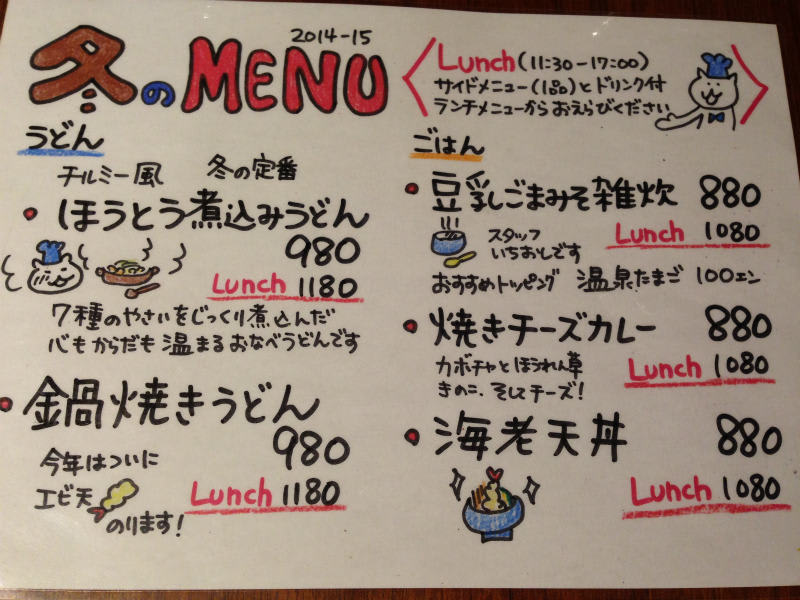 冬のMENU
2014-15
Lunch(11:30-17:00)
サイドメニュー(1品)とドリンク付
ランチメニューからおえらびください
うどん
チルミー風 冬の定番
・ほうとう煮込みうどん
980
Lunch 1180
7種のやさいをじっくり煮込んだ
心もからだも温まるおなべうどんです
・鍋焼きうどん
980
今年はついに
エビ天
のります!
Lunch 1180
ごはん
・豆乳ごまみそ雑炊 880
Lunch 1080
スタッフ
いちおしです
おすすめトッピング 温泉たまご 100エン
・焼きチーズカレー 880
Lunch 1080
カボチャとほうれん草
きのこ、そしてチーズ!
・海老天丼 880
Lunch 1080